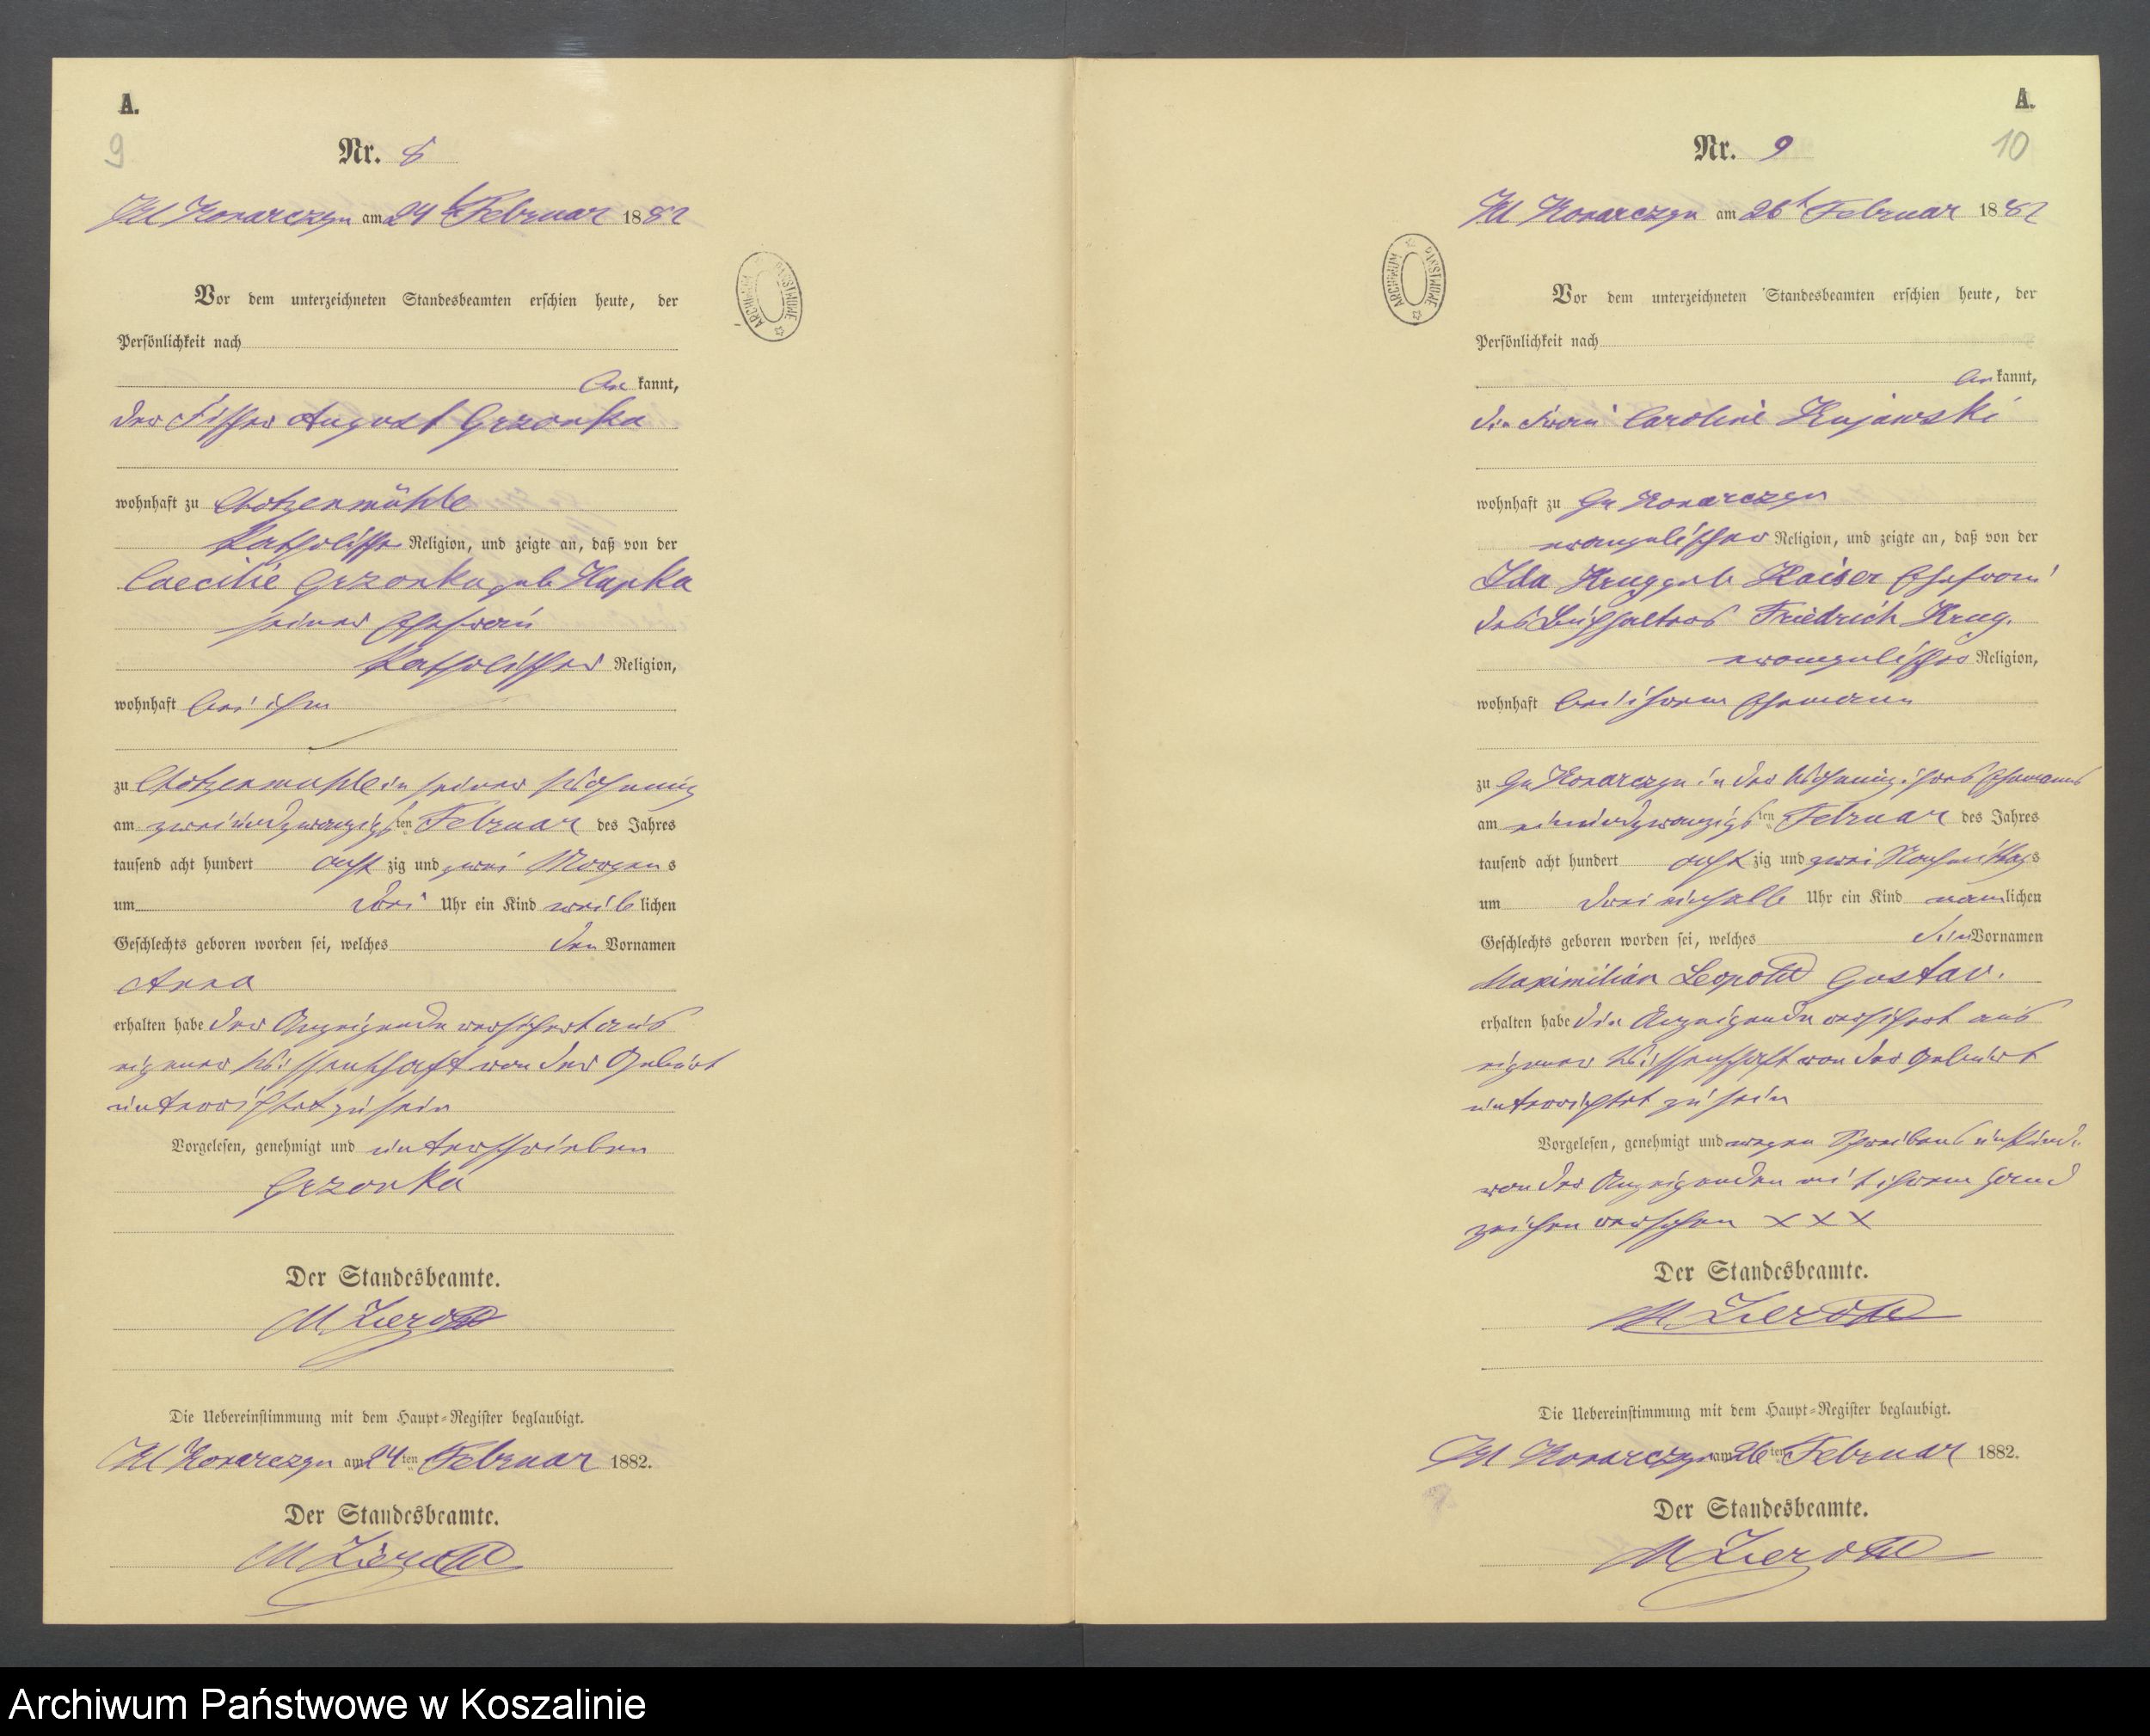 A.
9
Nr. 8
Kl Konarczyn am 24t Februar 1882
ARCHIWUM PAŃSTWOWE
Vor dem unterzeichneten Standesbeamten erschien heute, der
Persönlichkeit nach
be kannt,
der Fischer August Grzonka
wohnhaft zu Chotzenmühle
katholischer Religion, und zeigte an, daß von der
Caecilie Grzonka geb Hapka
seiner Ehefrau
katholischer Religion,
wohnhaft bei ihm
zu Chotzenmuhle in seiner Wohnung
am zweiundzwanzigsten Februar des Jahres
tausend acht hundert acht zig und zwei Morgens
um drei Uhr ein Kind weiblichen
Geschlechts geboren worden sei, welches den Vornamen
Anna
erhalten habe der Anzeigende versichert aus
eigener Wissenschaft von der Geburt
unterrichtet zu sein
Vorgelesen, genehmigt und unterschrieben
Grzonka
Der Standesbeamte.
M Zieroth
Die Uebereinstimmung mit dem Haupt-Register beglaubigt.
Kl Konarczyn am 24ten Februar 1882.
Der Standesbeamte.
M Zieroth
A.
10
Nr. 9
Kl Konarczyn am 26t Februar 1882
ARCHIWUM PAŃSTWOWE
Vor dem unterzeichneten Standesbeamten erschien heute, der
Persönlichkeit nach
be kannt,
die Frau Caroline Kujawski
wohnhaft zu Gr Konarczyn
evangelischer Religion, und zeigte an, daß von der
Ida Krug geb Kaiser Ehefrau
des Buchhalters Friedrich Krug.
evangelischer Religion,
wohnhaft bei ihrem Ehemann
zu Gr Konarczyn in der Wohnung ihres Ehemanns
am einundzwanzigsten Februar des Jahres
tausend acht hundert acht zig und zwei Nachmittags
um drei einhalb Uhr ein Kind männlichen
Geschlechts geboren worden sei, welches die Vornamen
Maximilian Leopold Gustav.
erhalten habe die Anzeigende versichert aus
eigener Wissenschaft von der Geburt
unterrichtet zu sein
Vorgelesen, genehmigt und wegen Schreibens unkunde
von der Anzeigenden mit ihrem Hand
zeichen versehen XXX
Der Standesbeamte.
M Zieroth
Die Uebereinstimmung mit dem Haupt-Register beglaubigt.
Kl Konarczyn am 26ten Februar 1882.
Der Standesbeamte.
M Zieroth
Archiwum Państwowe w Koszalinie